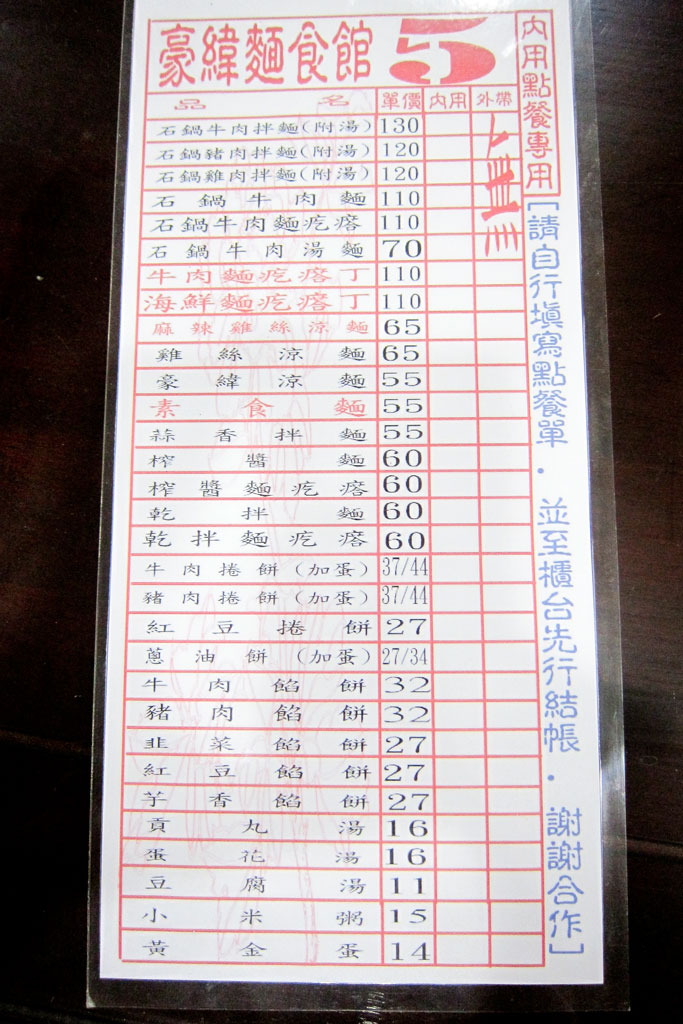 豪緯麵食館 5
內用點餐專用
品名 單價 內用 外帶
石鍋牛肉拌麵(附湯) 130
石鍋豬肉拌麵(附湯) 120
石鍋雞肉拌麵(附湯) 120
石鍋牛肉麵 110
石鍋牛肉麵疙瘩 110
石鍋牛肉湯麵 70
牛肉麵疙瘩丁 110
海鮮麵疙瘩丁 110
麻辣雞絲涼麵 65
雞絲涼麵 65
豪緯涼麵 55
素食麵 55
蒜香拌麵 55
榨醬麵 60
榨醬麵疙瘩 60
乾拌麵 60
乾拌麵疙瘩 60
牛肉捲餅(加蛋) 37/44
豬肉捲餅(加蛋) 37/44
紅豆捲餅 27
蔥油餅(加蛋) 27/34
牛肉餡餅 32
豬肉餡餅 32
韭菜餡餅 27
紅豆餡餅 27
芋香餡餅 27
貢丸湯 16
蛋花湯 16
豆腐湯 11
小米粥 15
黃金蛋 14
[請自行填寫點餐單．並至櫃台先行結帳．謝謝合作]